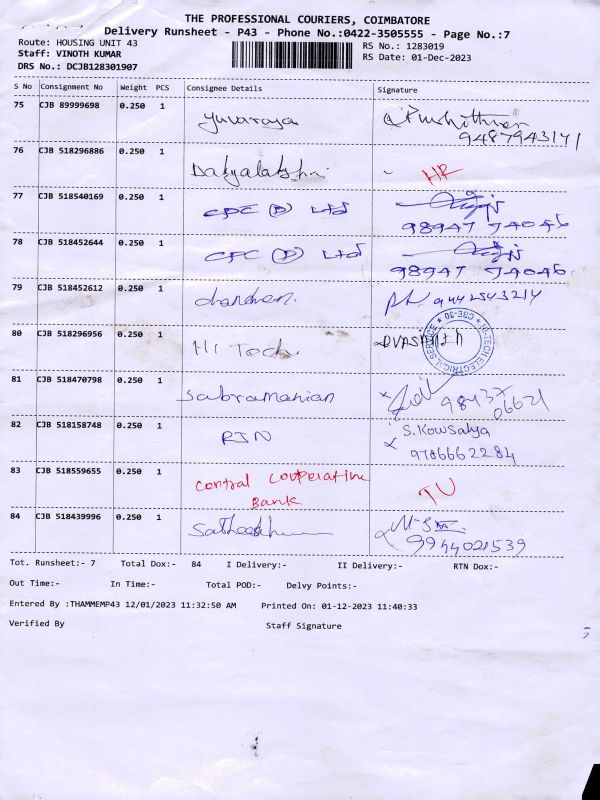 THE PROFESSIONAL COURIERS, COIMBATORE
Delivery Runsheet - P43 - Phone No.:0422-3505555 - Page No.:7
Route: HOUSING UNIT 43
RS No.: 1283019
Staff: VINOTH KUMAR
RS Date: 01-Dec-2023
DRS No.: DCJB128301907
S No Consignment No Weight PCS Consignee Details Signature
75 CJB 89999698 0.250 1 Yuvaraya
9487943141
76 CJB 518296886 0.250 1
77 CJB 518540169 0.250 1 CPC (P) Ltd
98947 74046
78 CJB 518452644 0.250 1 CPC (P) Ltd
98947 74046
79 CJB 518452612 0.250 1 9442543214
80 CJB 518296956 0.250 1 Hi Tech
HI-TECH ELECTRICAL SERVICE * CBE-30 *
81 CJB 518470798 0.250 1 Sabramanian 98437
06621
82 CJB 518158748 0.250 1 RJN S. Kowsalya
9786662284
83 CJB 518559655 0.250 1 Central Cooperative TU
Bank
84 CJB 518439996 0.250 1
9944021539
Tot. Runsheet:- 7 Total Dox:- 84 I Delivery:- II Delivery:- RTN Dox:-
Out Time:- In Time:- Total POD:- Delvy Points:-
Entered By :THAMMEMP43 12/01/2023 11:32:50 AM Printed On: 01-12-2023 11:40:33
Verified By Staff Signature